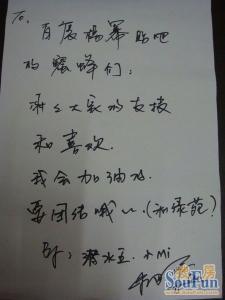 百度杨幂贴吧
的蜜蜂们:
谢谢大家的支持
和喜欢.
我会加油的.
要团结哦~.(和绿苑?
BY: 潜水五.小Mi
搜房
SouFun